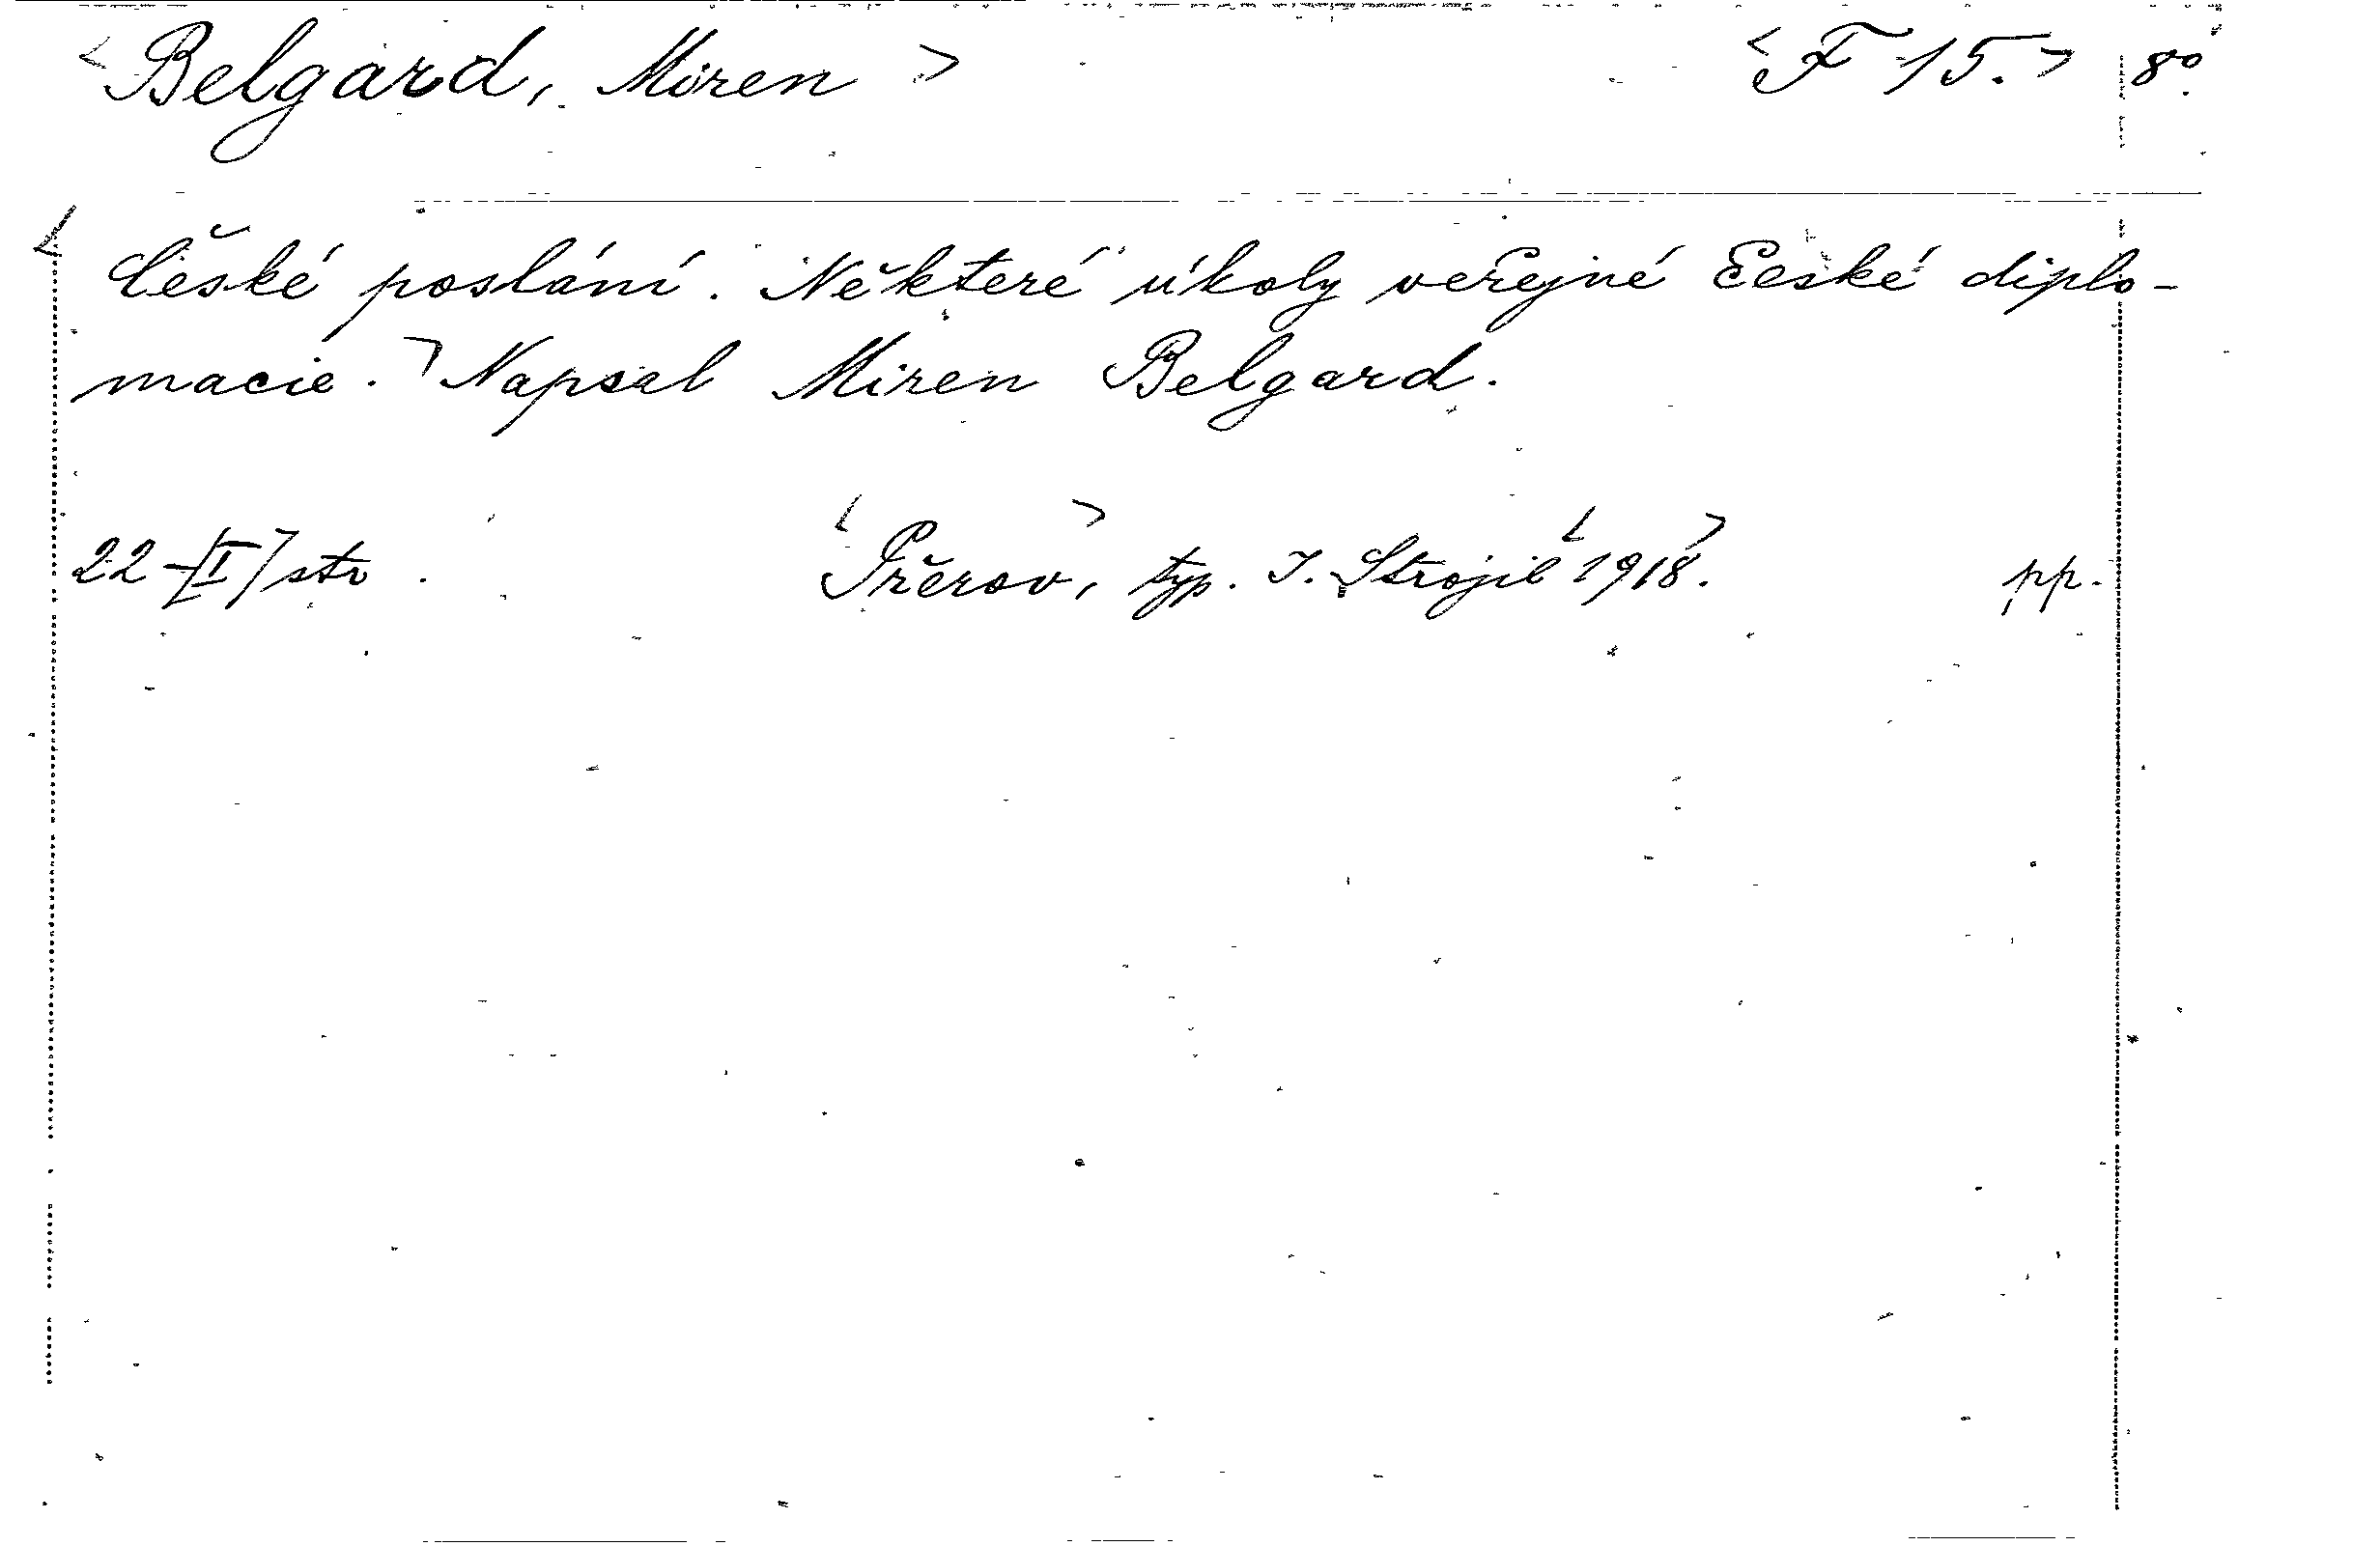 <Belgard, Miren> <F 15.> 8°
<České poslání. Některé úkoly veřejné české diplo-
macie.> Napsal Miren Belgard.
22-[I] str. <Přerov>, typ. J. Strojil <1918>. pp.